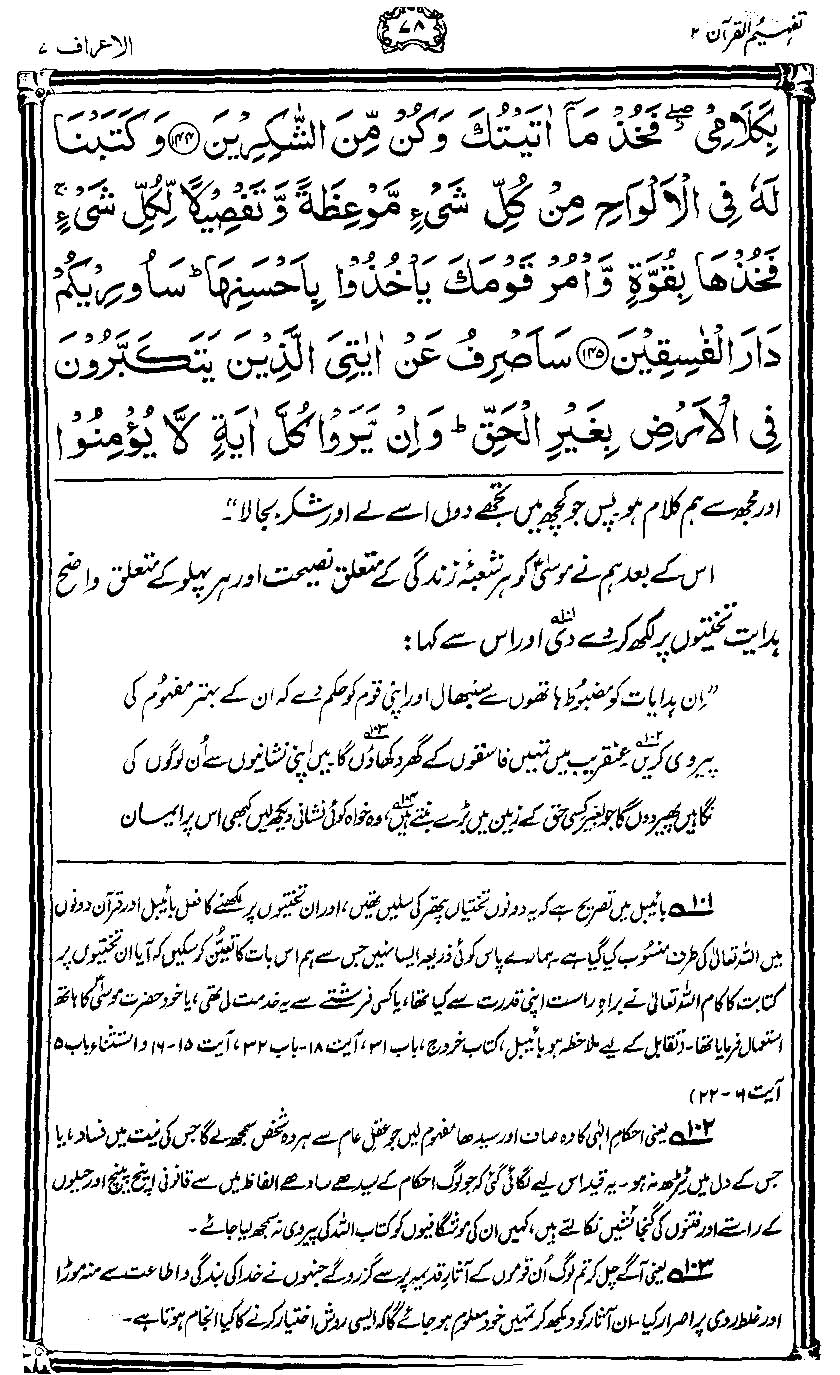 تفہیم القرآن ۲
۷۸
الاعراف ۷
بِكَلَامِیْ ۖ٘ فَخُذْ مَاۤ اٰتَیْتُكَ وَ كُنْ مِّنَ الشّٰكِرِیْنَ ﴿۱۴۴﴾ وَ كَتَبْنَا
لَهٗ فِی الْاَلْوَاحِ مِنْ كُلِّ شَیْءٍ مَّوْعِظَةً وَّ تَفْصِیْلًا لِّكُلِّ شَیْءٍ ۚ
فَخُذْهَا بِقُوَّةٍ وَّ اْمُرْ قَوْمَكَ یَاْخُذُوْا بِاَحْسَنِهَا ؕ سَاُورِیْكُمْ
دَارَ الْفٰسِقِیْنَ ﴿۱۴۵﴾ سَاَصْرِفُ عَنْ اٰیٰتِیَ الَّذِیْنَ یَتَكَبَّرُوْنَ
فِی الْاَرْضِ بِغَیْرِ الْحَقِّ ؕ وَ اِنْ یَّرَوْا كُلَّ اٰیَةٍ لَّا یُؤْمِنُوْا
اور مجھ سے ہم کلام ہو۔ پس جو کچھ میں تجھے دوں اسے لے اور شکر بجالا"۔
اس کے بعد ہم نے موسیٰؑ کو ہر شعبۂ زندگی کے متعلق نصیحت اور ہر پہلو کے متعلق واضح
ہدایت تختیوں پر لکھ کر دے دی۱۰۱ اور اس سے کہا:
"اِن ہدایات کو مضبوط ہاتھوں سے سنبھال اور اپنی قوم کو حکم دے کہ ان کے بہتر مفہُوم کی
پیروی کریں۱۰۲۔ عنقریب میں تمہیں فاسقوں کے گھر دکھاؤں گا۱۰۳۔ میں اپنی نشانیوں سے اُن لوگوں کی
نگاہیں پھیر دوں گا جو بغیر کسی حق کے زمین میں بڑے بنتے ہیں۱۰۴، وہ خواہ کوئی نشانی دیکھ لیں کبھی اس پر ایمان
۱۰۱ بائیبل میں تصریح ہے کہ یہ دونوں تختیاں پتھر کی سلیں تھیں، اور ان تختیوں پر لکھنے کا فعل بائیبل اور قرآن دونوں
میں اللہ تعالیٰ کی طرف منسُوب کیا گیا ہے۔ ہمارے پاس کوئی ذریعہ ایسا نہیں جس سے ہم اس بات کا تعیُّن کر سکیں کہ آیا ان تختیوں پر
کتابت کا کام اللہ تعالیٰ نے براہِ راست اپنی قدرت سے کیا تھا، یا کسی فرشتے سے یہ خدمت لی تھی، یا خود حضرت موسیٰؑ کا ہاتھ
استعمال فرمایا تھا۔ (تقابل کے لیے ملاحظہ ہو بائیبل، کتاب خروج، باب ۳۱، آیت ۱۸۔ باب ۳۲، آیت ۱۵-۱۶ و استثناء باب ۵
آیت ۶-۲۲)
۱۰۲ یعنی احکامِ الٰہی کا وہ صاف اور سیدھا مفہوم لیں جو عقلِ عام سے ہر وہ شخص سمجھ لے گا جس کی نیت میں فساد، یا
جس کے دل میں ٹیڑھ نہ ہو۔ یہ قید اس لیے لگائی گئی کہ جو لوگ احکام کے سیدھے سادھے الفاظ میں سے قانونی اینچ پینچ اور حیلوں
کے راستے اور فتنوں کی گنجائشیں نکالتے ہیں، کہیں ان کی موشگافیوں کو کتاب اللہ کی پیروی نہ سمجھ لیا جائے۔
۱۰۳ یعنی آگے چل کر تم لوگ اُن قوموں کے آثارِ قدیمہ پر سے گزرو گے جنہوں نے خدا کی بندگی و اطاعت سے منہ موڑا
اور غلط روی پر اصرار کیا۔ ان آثار کو دیکھ کر تمہیں خود معلوم ہو جائے گا کہ ایسی روش اختیار کرنے کا کیا انجام ہوتا ہے۔